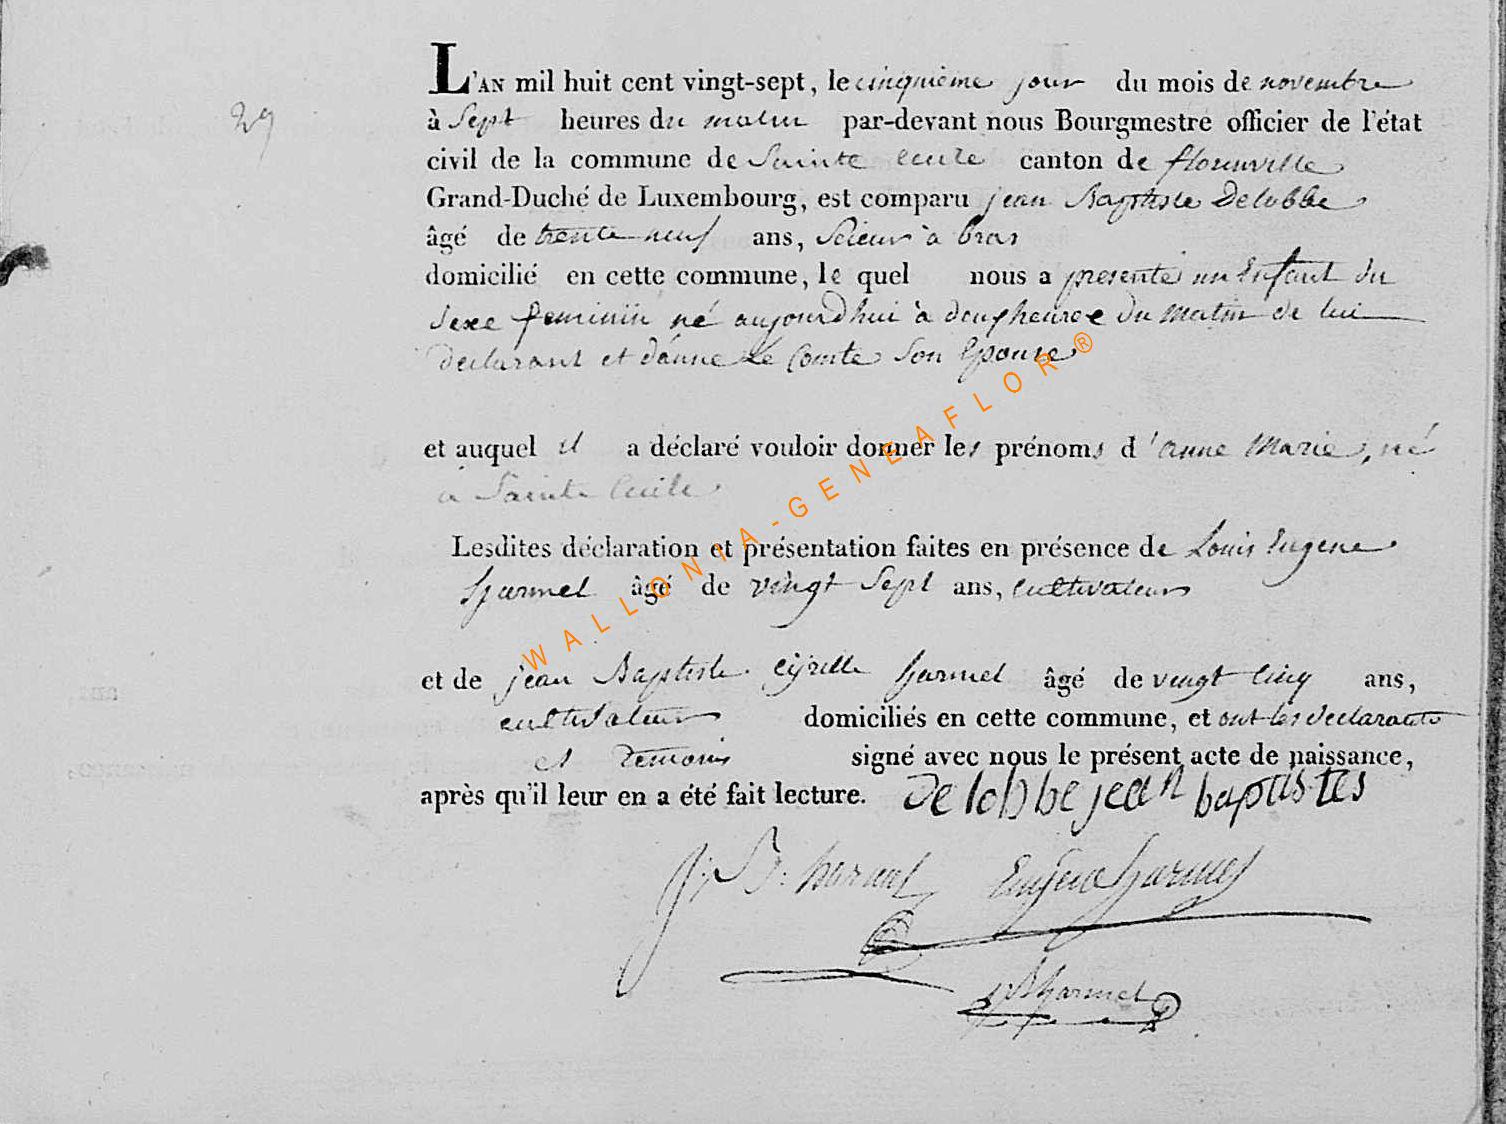 L'AN mil huit cent vingt-sept, le cinquieme jour du mois de novembre
29
à Sept heures du matin par-devant nous Bourgmestre officier de l'état
civil de la commune de Sainte Cecile canton de florenville
Grand-Duché de Luxembourg, est comparu jean Baptiste Delobbe
âgé de trente neuf ans, Scieur à bras
domicilié en cette commune, le quel nous a presenté un Enfant du
Sexe feminin né aujourd'hui à deux heures du Matin de lui
declarant et d'anne Le Comte Son Epouse
et auquel il a déclaré vouloir donner les prénoms d'anne Marie, né
a Sainte Cecile
Lesdites déclaration et présentation faites en présence de Louis Eugene
harmel âgé de vingt Sept ans, cultivateur
et de jean Baptiste Cyrille harmel âgé de vingt Cinq ans,
cultivateur domiciliés en cette commune, et ont les declarants
et temoins signé avec nous le présent acte de naissance,
après qu'il leur en a été fait lecture. De lobbe jean baptistes
J: B: harmel Eugene harmel
harmel
WALLONIA-GENEAFLOR®